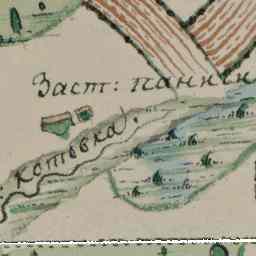 Заст: панкен
котовка.